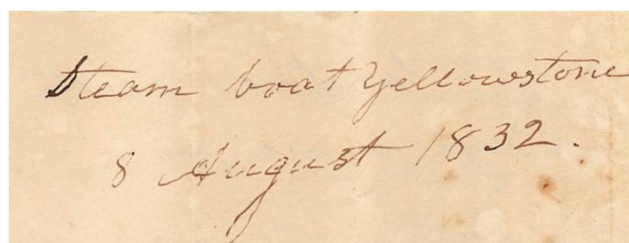 Steam boat Yellowstone
8 August 1832.